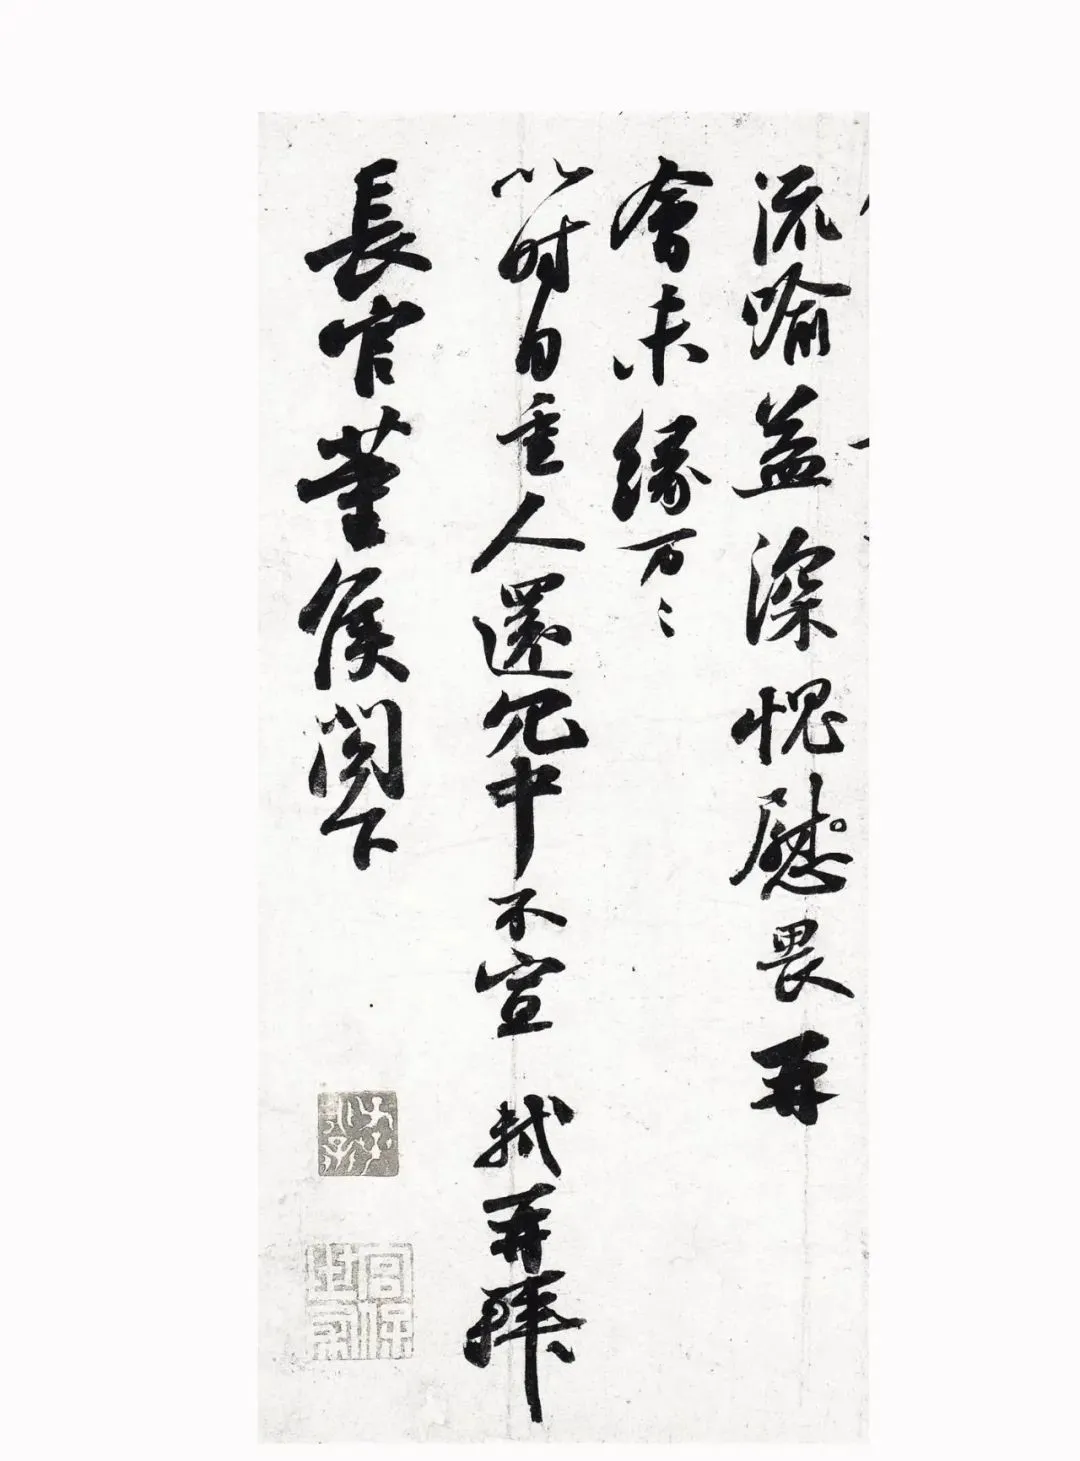 流喻益深愧慰畏再
會未緣万〻
以时自重人還冗中不宣 軾再拜
長官董侯閤下